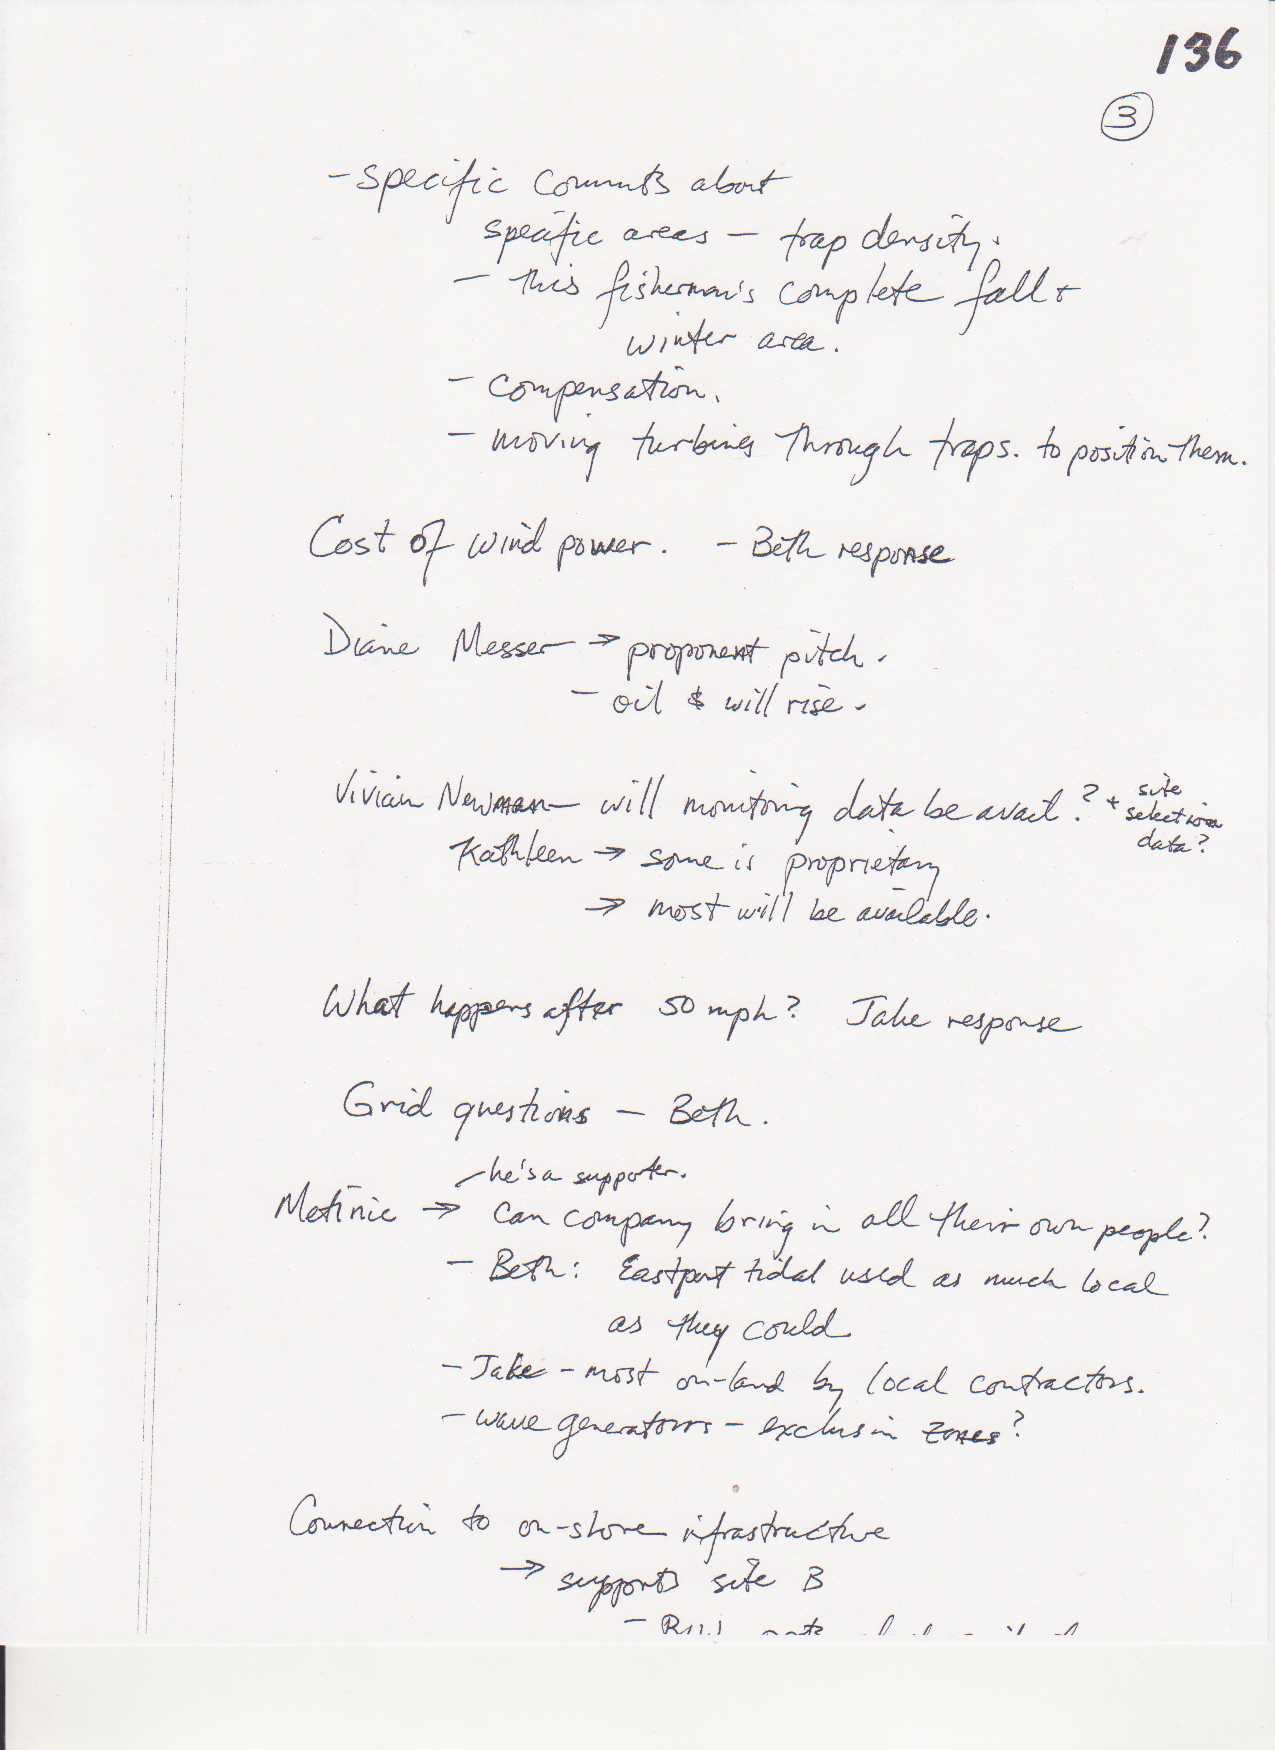 136
3
- specific comments about
specific areas - trap density.
- this fisherman's complete fall +
winter area.
- compensation.
- moving turbines through traps. to position them.
Cost of wind power. - Beth response
Diane Messer → proponent pitch.
- oil $ will rise.
Vivian Newman - will monitoring data be avail? + site
selection
data?
Kathleen → some is proprietary
→ most will be available.
What happens after 50 mph? Jake response
Grid questions - Beth.
- he's a supporter.
Metinic → can company bring in all their own people?
- Beth: Eastport tidal used as much local
as they could
- Jake - most on-land by local contractors.
- wave generators - exclusion zones?
Connection to on-shore infrastructure
→ supports site B